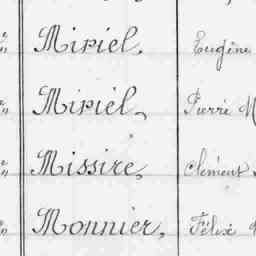 Miriel, Eugène
Miriel, Pierre M
Missire, Clément
Monnier, Félix